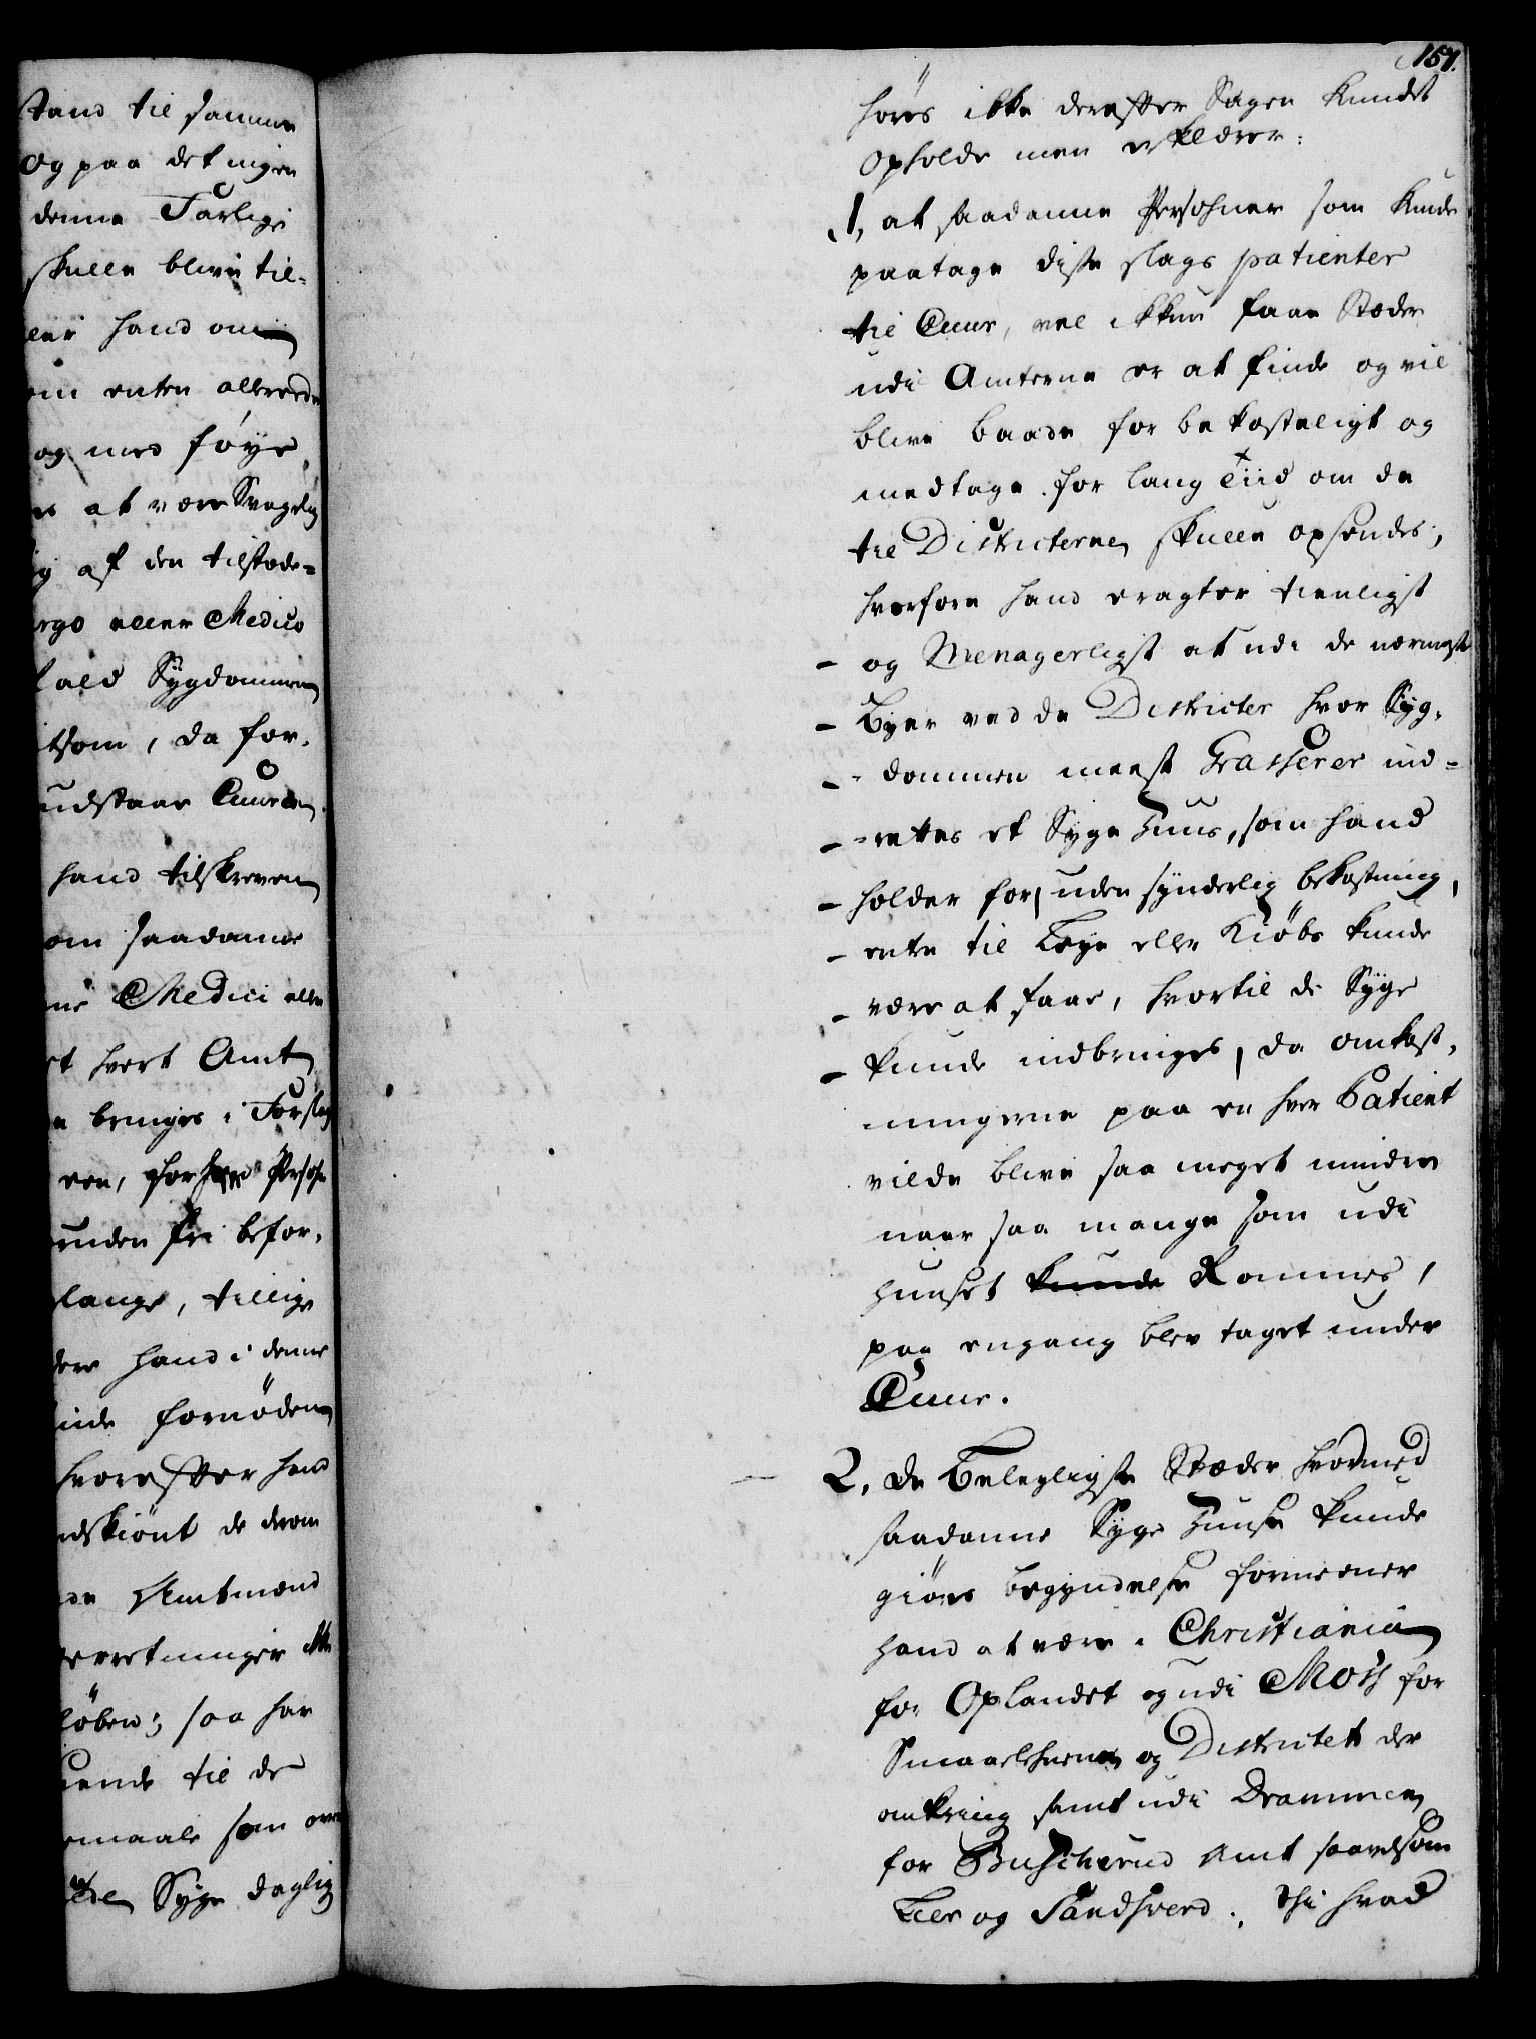 157.
tand til samme
Og paa det ingen
denne Farlige
skulle blive til=
hand om
enten allereede
og med føye
at være Svagelig
af den tilstæde=
rgo eller Medico
Sygdommen
som, da for-
udstaar Cuuren.
hand tilskreven
om saadanne
Medici eller
hvert Amt
bringes i Forslag
een, for Persohn
uden fri befor-
lange, tillige
hand i denne
fornøden
hvorefter hand
dskiønt de derom
Amtmænd
erretninger
løben; saa har
ende til de
maale som
Syge daglig
høres ikke derefter Sagen Kundet
Opholde men erklærer:
1, at saadanne Persohner som Kunde
paatage disse slags patienter
til Cuur, vel ikkun faae Stæder
udi Amterne er at finde og vil
blive baade for bekosteligt og
medtage for lang Tiid om de
til Districterne skulle opsendes;
hvorfore hand eragter tienligst
- og Menagerligst at udi de nærmeste
- Byer ved de Districter hvor Syg-
- dommen meest Grasserer ind=
- =rettes et Syge Huus, som hand
- holder for, uden synderlig bekostning,
- enten til Leye eller Kiøbs kunde
- være at faae, hvortil de Syge
- kunde indbringes, da omkost-
ningerne paa en hver Patient
vilde blive saa meget mindre
naar saa mange som udi
Huuset kunde Rommes,
paa engang blev taget under
Cuur.
2, De Beleyligste Stæder hvormed
saadanne Syge Huuse kunde
giøres begyndelse formeener
hand at være i Christiania
for Oplandet og udi Moss for
Smaalehnene og Districtet der
omkring samt udi Drammen
for Buscherud Amt saavelsom
Lier og Sandsverd; Thi hvad